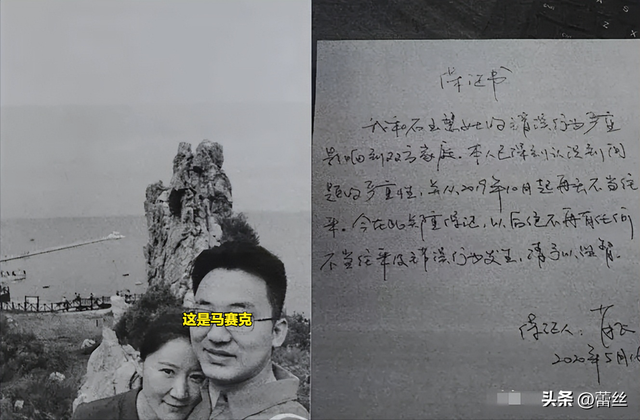 这是马赛克
保证书
我和石玉的错误行为严重
影响到双方家庭。本人已深刻认识到问
题的严重性,并从2019年10月起再无不当往
来。今在此严重保证,以后绝不再有任何
不当往来及错误行为发生,请予以监督。
保证人:
2020年5月
头条 @蕾丝